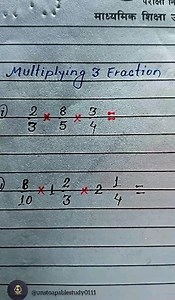 परीक्षा
माध्यमिक शिक्षा
Multiplying 3 Fraction
i) 2/3 × 8/5 × 3/4 =
) 8/10 × 1 2/3 × 2 1/4 =
@unstoppablestudy0111